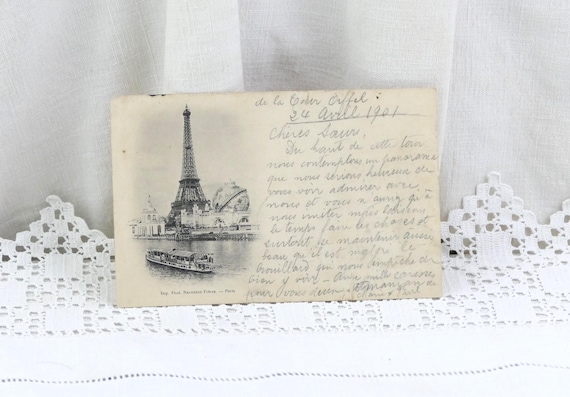 de la Tour Eiffel :
24 Avril 1901
Chères Sœurs,
Du haut de cette tour
nous contemplons un panorama
que nous serions heureux de
vous voir admirer avec
nous et vous n'avez qu'à
nous imiter mais laissons
le temps faire les choses et
surtout se maintenir aussi
beau qu'il est malgré le
brouillard qui nous empêche de
bien y voir. mille caresses
pour vous deux
Imp. Phot. Neurdein Frères. — Paris